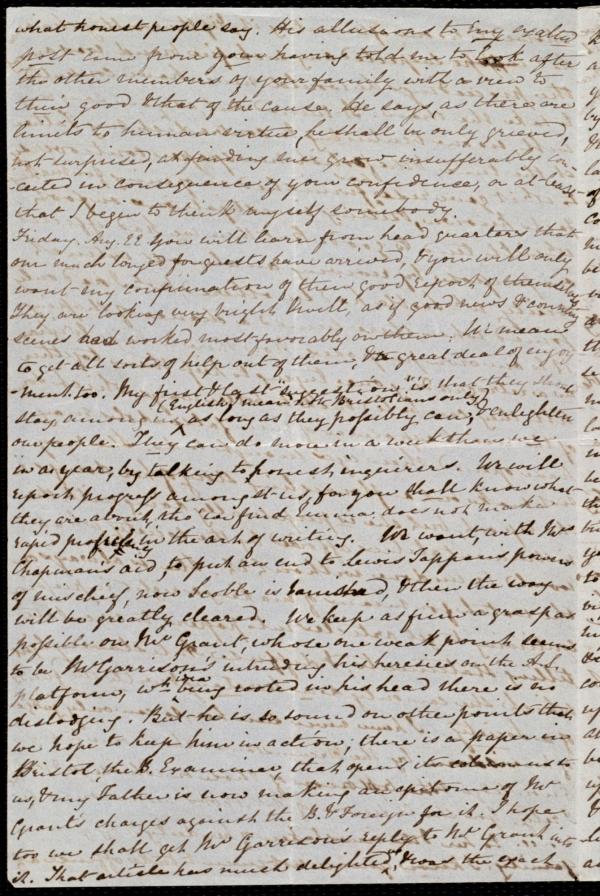 what honest people say. His allusions to my exalted
post came from your having told me to look after
the other members of your family with a view to
their good & that of the cause. He says, as there are
limits to human virtue, he shall be only grieved,
not surprised, at finding me grow insufferably con
-ceited in consequence of your confidence, or at least
that I begin to think myself somebody.
Friday. Aug. 22 You will learn from head quarters that
our much longed for guests have arrived, & you will only
want my confirmation of their good report of themselves
They are looking very bright & well, as if good news & country
scenes had worked most favorably on them. We mean
to get all sorts of help out of them, & a great deal of enjoy
-ment too. My first & last "suggestion" is that they should
(English, I mean, not the Bristolians only)
stay among us, as long as they possibly can, & enlighten
our people. They can do more in a week than we
in a year, by talking to honest inquirers. We will
report progress amongst us, for you shall know what
they are about, tho' we find Emma does not make
rapid progress in the art of writing. We want, with Mrs
Chapman's aid, to put an end to Lewis Tappan's powers
of mischief, now Scoble is vanished, & then the way
will be greatly cleared. We keep as firm a grasp as
possible on Mr Grant, whose one weak point seems
to be Mr Garrison's intruding his heresies on the A.S.
platform, wh idea being rooted in his head there is no
dislodging. But he is so sound on other points that
we hope to keep him in action; there is a paper in
Bristol, the B. Examiner, that opens its columns to
us, & my Father is now making an epitome of Mr
Grant's charges against the B. & Foreign for it. I hope
too we shall get Mr Garrison's reply to Mr Grant into
it. That article has much delighted, & was the exact